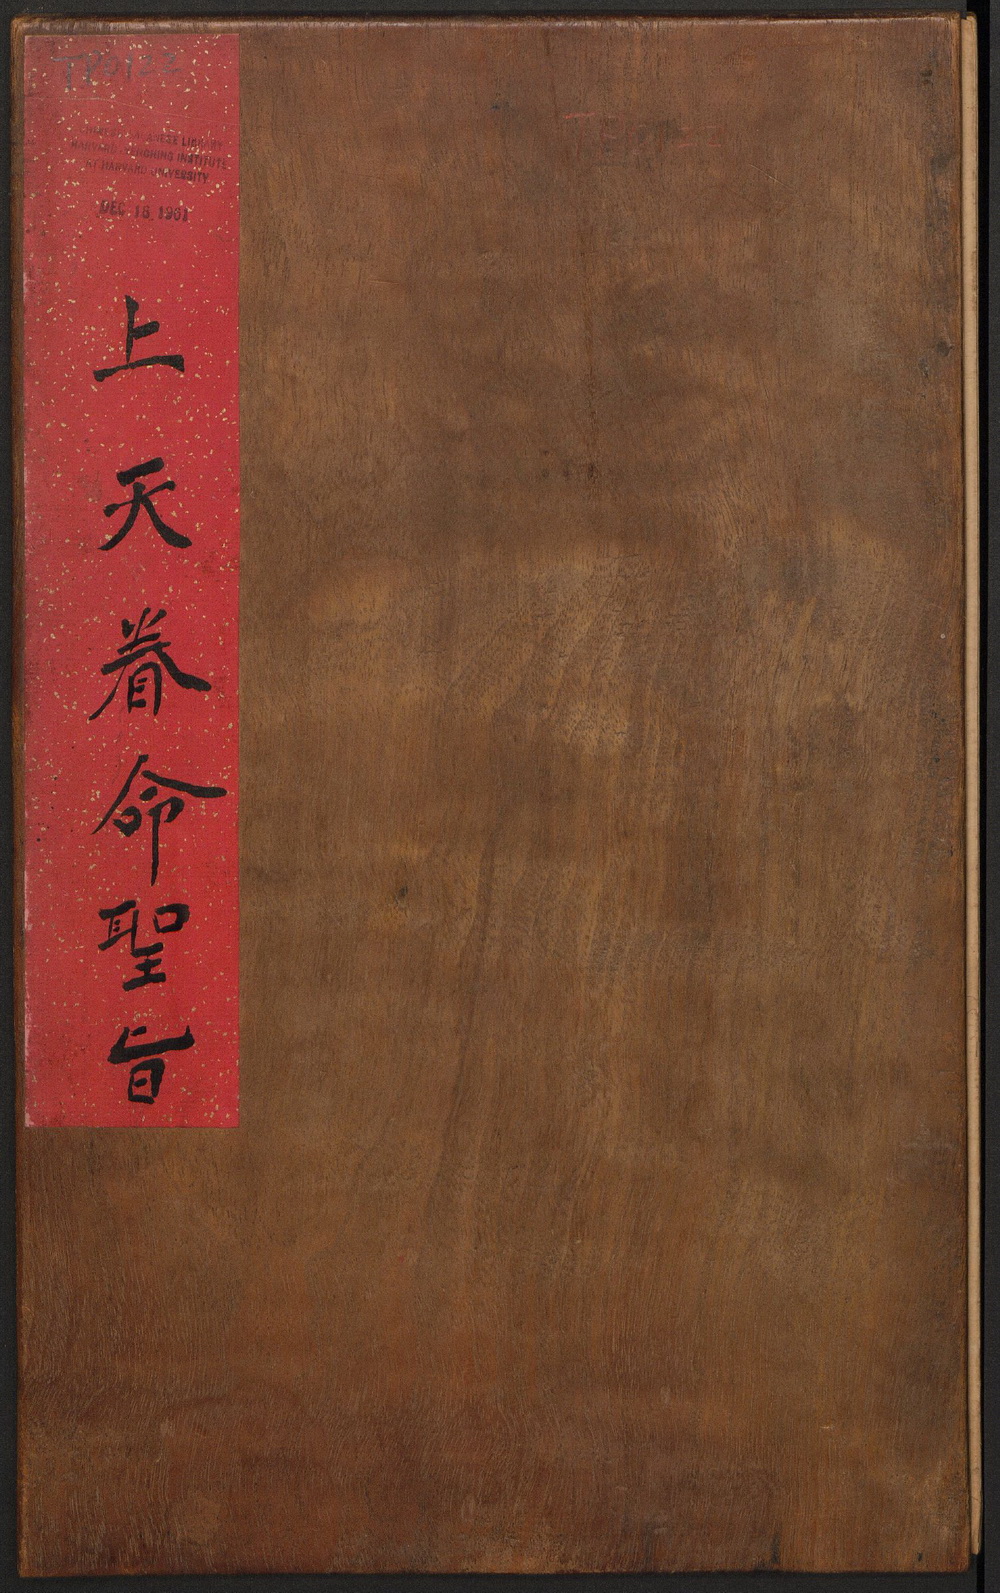 CHINESE-JAPANESE LIBRARY
HARVARD-YENCHING INSTITUTE
AT HARVARD UNIVERSITY
DEC 18 1961
上天眷命聖旨